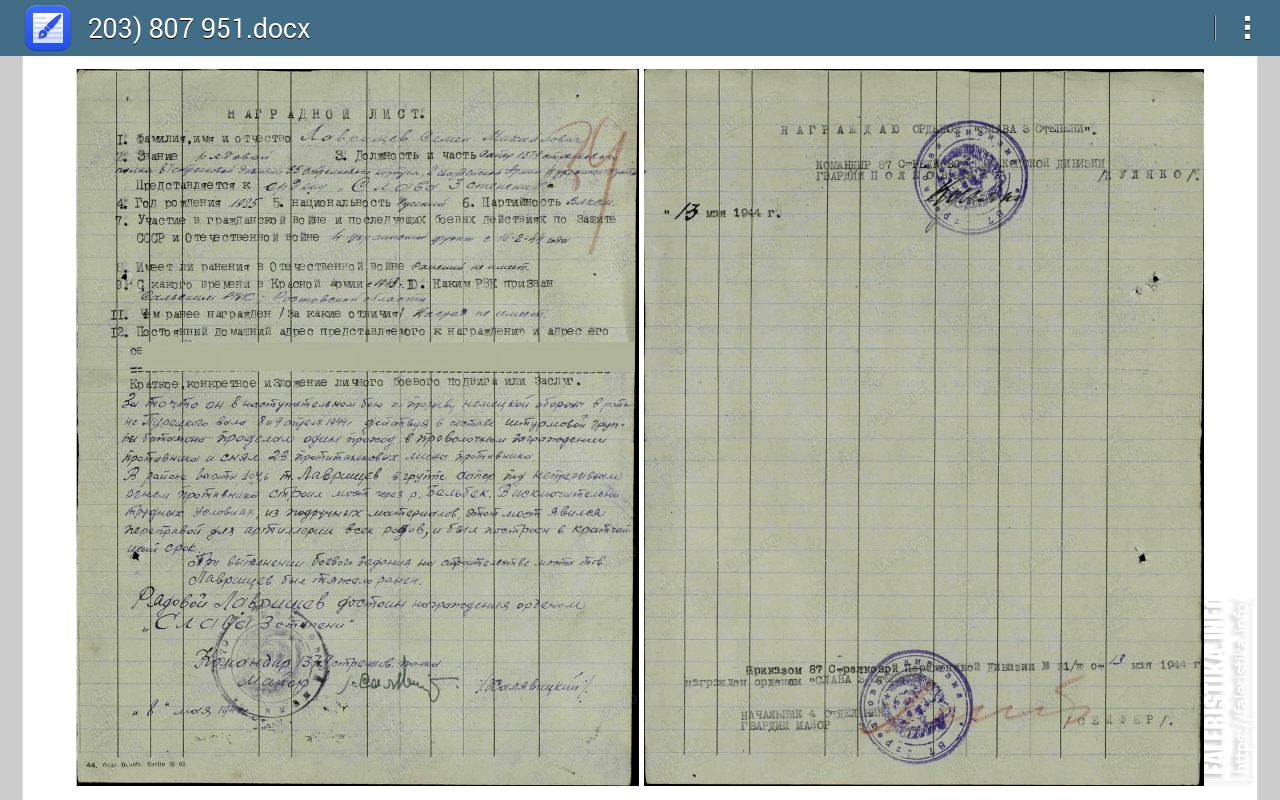 203) 807 951.docx
НАГРАДНОЙ ЛИСТ.
1. Фамилия,имя и отчество Лаврищев Семен Михайлович
2. Звание рядовой 3. Должность и часть сапер 1379 стрелкового
полка 87 стрелковой дивизии 55 стрелкового корпуса,
Представляется к ордену "Слава 3 степени".
4. Год рождения 1925 5. национальность Русский 6. Партийность
7. Участие в гражданской войне и последующих боевых действиях по Защите
СССР и Отечественной войне 4 украинский фронт с 16-2-44 года
8. Имеет ли ранения в Отечественной войне Ранений не имеет.
9. С какого времени в Красной армии с 1943 г. 10. Каким РВК призван
Сальским РВК - Ростовской области
11. Чем ранее награжден /за какие отличия/ Наград не имеет.
12. Постоянный домашний адрес представляемого к награждению и адрес его
се
Краткое,конкретное изложение личного боевого подвига или Заслуг.
За то что он в наступательном бою по прорыву немецкой обороны в райо-
не Турецкого вала 8 и 9 апреля 1944г действуя в составе штурмовой груп-
пы батальона проделал один проход в проволочном заграждении
противника и снял 23 противотанковых мины противника.
В районе высоты 104,6 т. Лаврищев в группе сапер под непрерывным
огнем противника строил мост через р. Бельбек. В исключительно
трудных условиях, из подручных материалов, этот мост явился
переправой для артиллерии всех родов, и был построен в кратчай-
ший срок.
При выполнении боевого задания на строительстве моста тов.
Лаврищев был тяжело ранен.
Рядовой Лаврищев достоин награждения орденом
"Слава 3 степени"
Командир 1379 стрелков. полка
Майор /Халявицкий/.
"8" мая 1944г.
44. Hugo Hentke, Berlin W 62.
НАГРАЖДАЮ ОРДЕНОМ "СЛАВА 3 СТЕПЕНИ".
КОМАНДИР 87 СТРЕЛКОВОЙ ПЕРЕКОПСКОЙ ДИВИЗИИ
ГВАРДИИ ПОЛКОВНИК /КУЛЯКО/.
"13 мая 1944 г.
Приказом 87 Стрелковой Перекопской Дивизии № 31/н от 13 мая 1944 г
награжден орденом "СЛАВА 3 СТЕПЕНИ"
НАЧАЛЬНИК 4 ОТДЕЛЕНИЯ
ГВАРДИИ МАЙОР /СЕЙФЕР/.
FALERISTIKA.INFO
https://faleristika.info